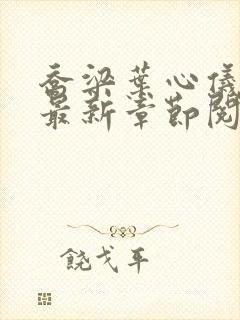 乔梁叶心仪
最新章节阅
饶戈平